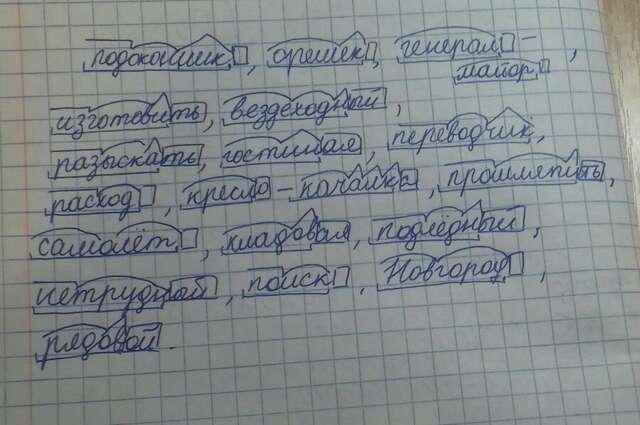 подоконник, орешек, генерал-
майор,
изготовить, вездеходный,
разыскать, гостиная, переводчик,
расход, кресло-качалка, прошлепить,
самолёт, кладовая, подлёдный,
нетрудной, поиск, Новгород,
рядовой.